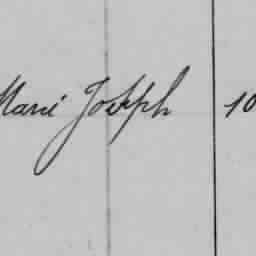 Marie Joseph 10